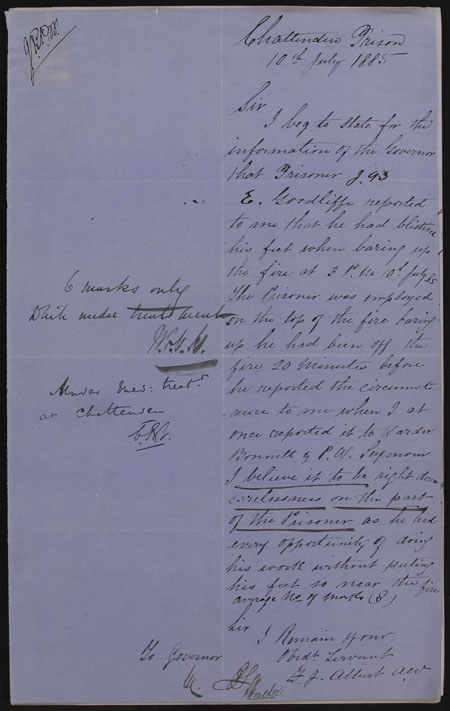 Chattenden Prison
10th July 1885
Sir
I beg to state for the
information of the Governor
that Prisoner J. 93
E. Goodliffe reported
to me that he had blistered
his feet when baring up
the fire at 3 P.M 10th July 85
The Prisoner was employed
on the top of the fire baring
up he had been off the
fire 20 Minutes before
he reported the circumst
ance to me when I at
once reported it to Warder
Bonnett & P.W. Seymour
I believe it to be right down
carelessness on the part
of the Prisoner as he had
every opportunity of doing
his work without puting
his feet so near the fire
average No of marks (8)
Sir
I Remain your
Obedt Servant
F. J. Albert AW
6 marks only
While under treatment
Under Med: treatt
at Chattenden
To Governor